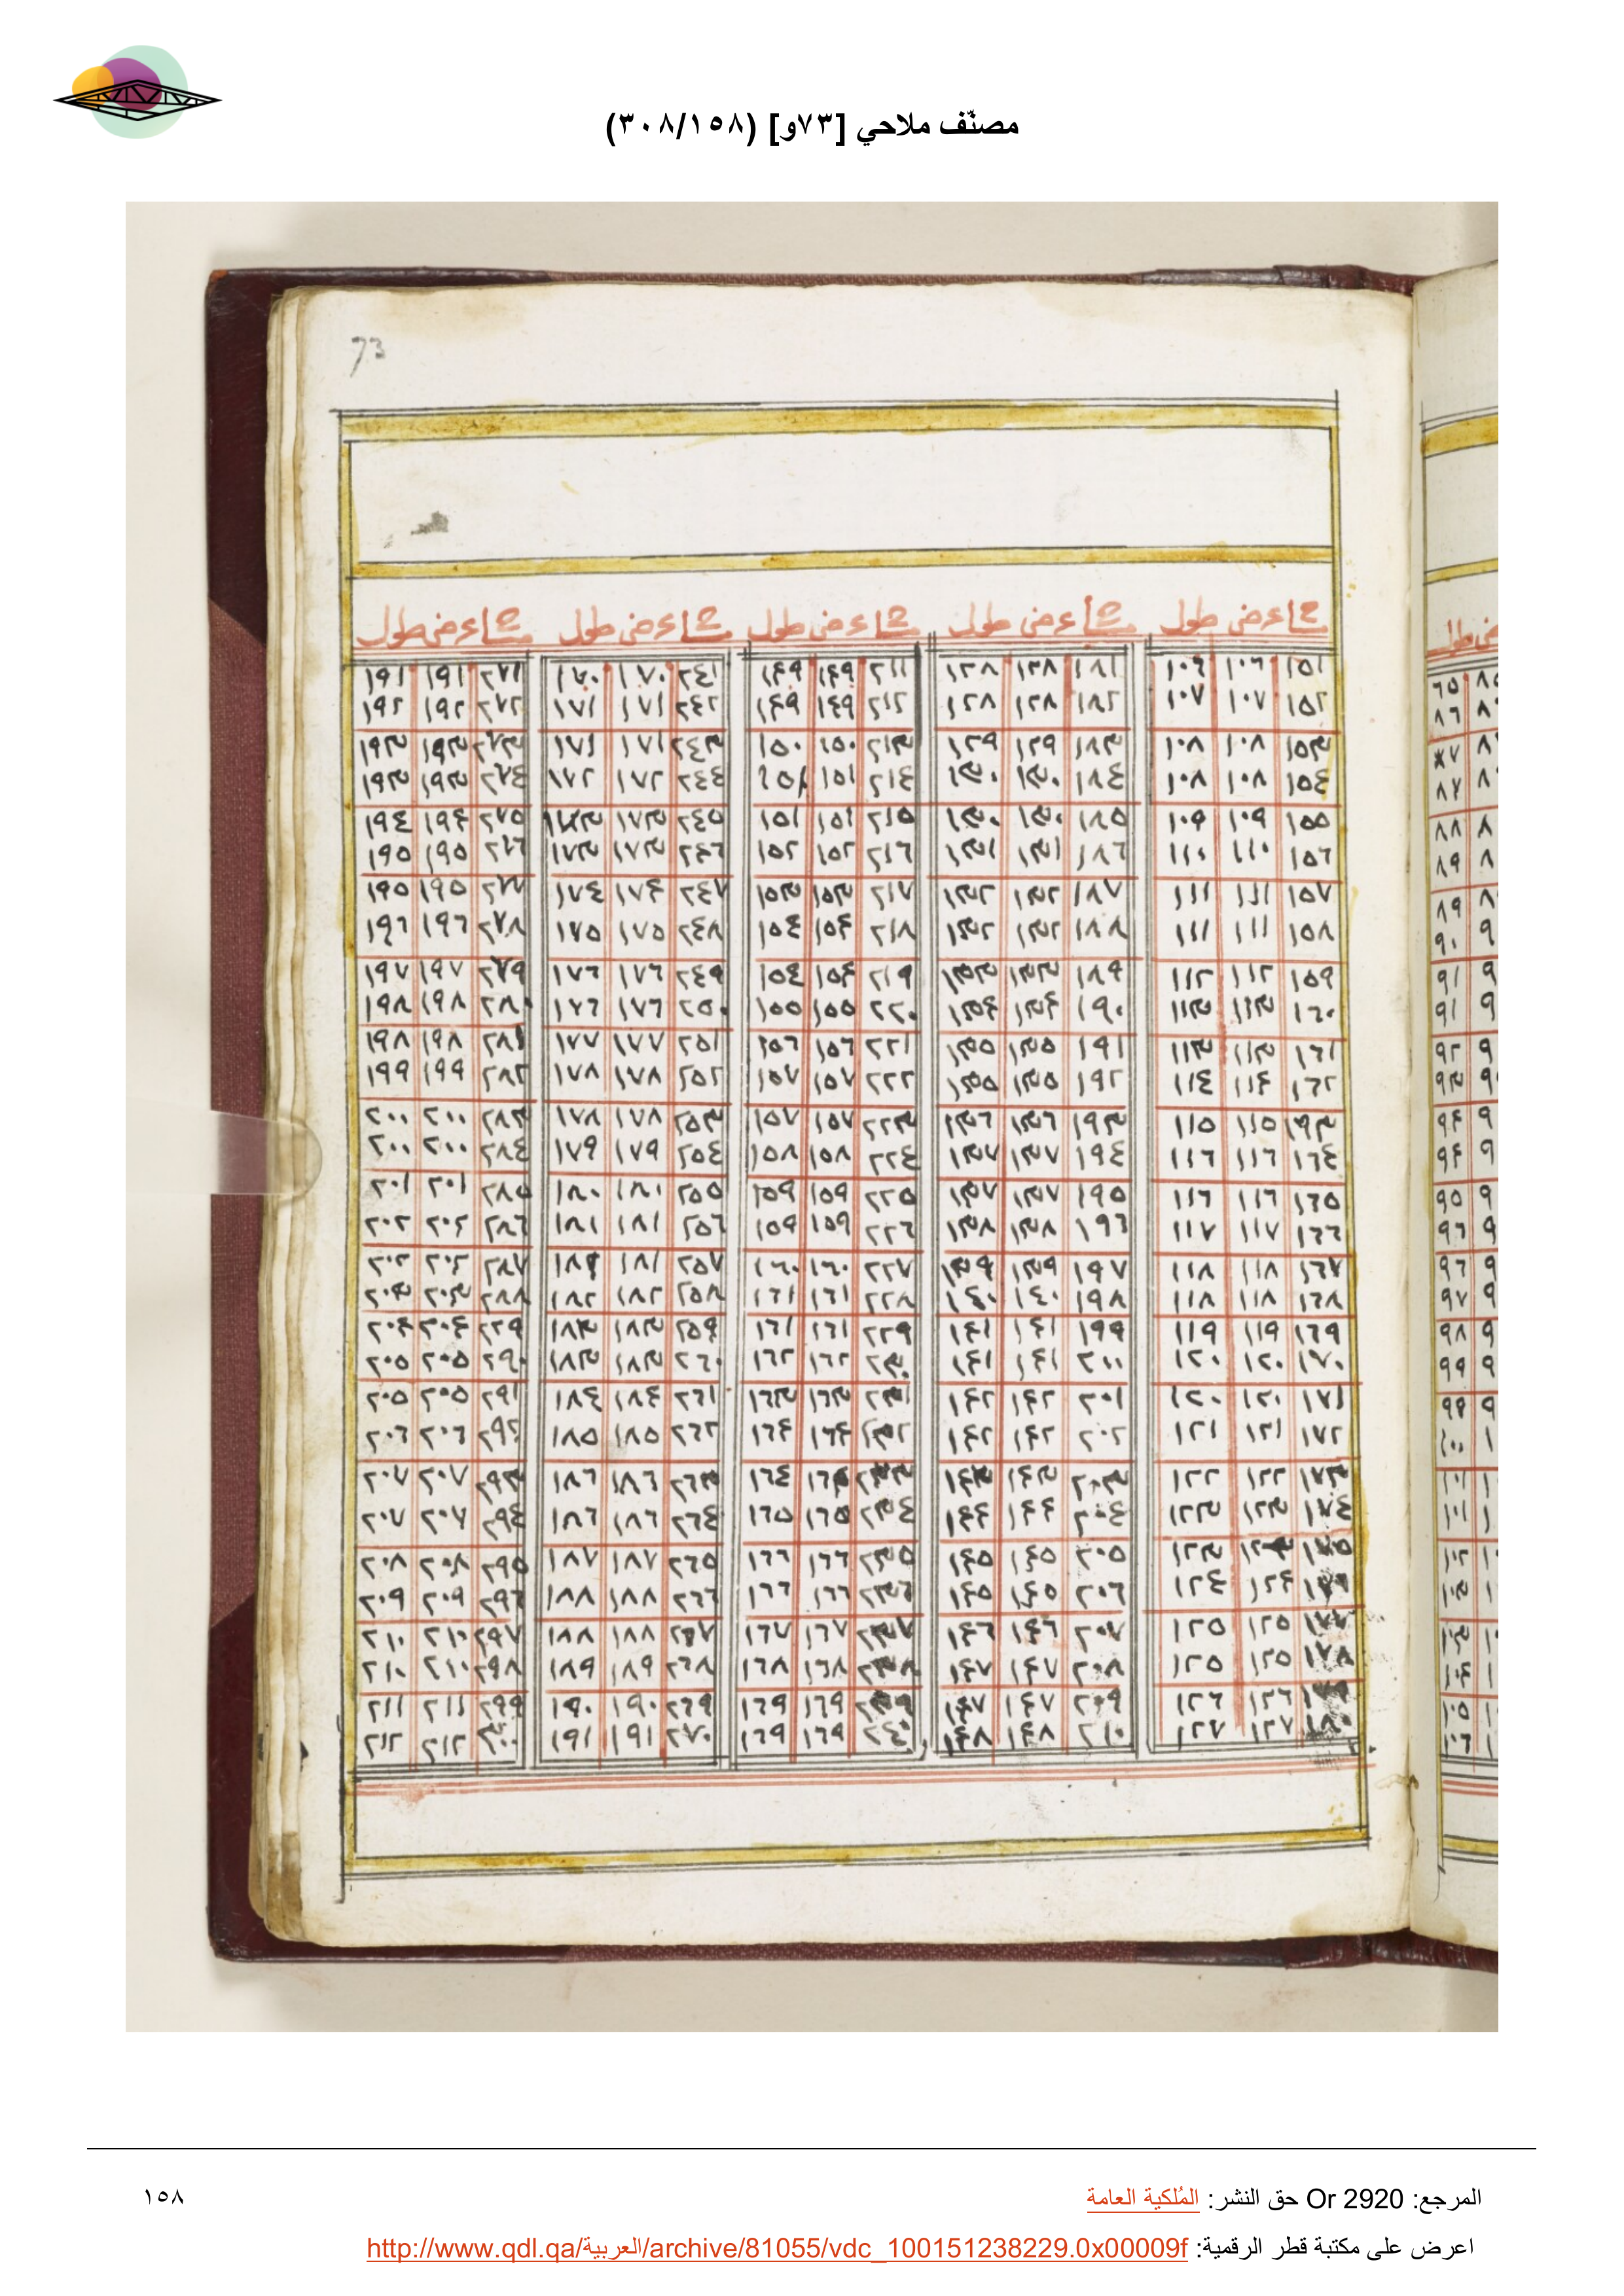 مصنّف ملاحي [٧٣و] (٣٠٨/١٥٨)
73
مشا عرض طول مشا عرض طول مشا عرض طول مشا عرض طول مشا عرض طول
١٥١ ١٠٦ ١٠٦ ١٨١ ١٢٨ ١٢٨ ٢١١ ١٤٩ ١٤٩ ٢٤١ ١٧٠ ١٧٠ ٢٧١ ١٩١ ١٩١
١٥٢ ١٠٧ ١٠٧ ١٨٢ ١٢٨ ١٢٨ ٢١٢ ١٤٩ ١٤٩ ٢٤٢ ١٧١ ١٧١ ٢٧٢ ١٩٢ ١٩٢
١٥٣ ١٠٨ ١٠٨ ١٨٣ ١٢٩ ١٢٩ ٢١٣ ١٥٠ ١٥٠ ٢٤٣ ١٧١ ١٧١ ٢٧٣ ١٩٣ ١٩٣
١٥٤ ١٠٨ ١٠٨ ١٨٤ ١٣٠ ١٣٠ ٢١٤ ١٥١ ١٥١ ٢٤٤ ١٧٢ ١٧٢ ٢٧٤ ١٩٣ ١٩٣
١٥٥ ١٠٩ ١٠٩ ١٨٥ ١٣٠ ١٣٠ ٢١٥ ١٥١ ١٥١ ٢٤٥ ١٧٣ ١٧٣ ٢٧٥ ١٩٤ ١٩٤
١٥٦ ١١٠ ١١٠ ١٨٦ ١٣١ ١٣١ ٢١٦ ١٥٢ ١٥٢ ٢٤٦ ١٧٣ ١٧٣ ٢٧٦ ١٩٥ ١٩٥
١٥٧ ١١١ ١١١ ١٨٧ ١٣٢ ١٣٢ ٢١٧ ١٥٣ ١٥٣ ٢٤٧ ١٧٤ ١٧٤ ٢٧٧ ١٩٥ ١٩٥
١٥٨ ١١١ ١١١ ١٨٨ ١٣٢ ١٣٢ ٢١٨ ١٥٤ ١٥٤ ٢٤٨ ١٧٥ ١٧٥ ٢٧٨ ١٩٦ ١٩٦
١٥٩ ١١٢ ١١٢ ١٨٩ ١٣٣ ١٣٣ ٢١٩ ١٥٤ ١٥٤ ٢٤٩ ١٧٦ ١٧٦ ٢٧٩ ١٩٧ ١٩٧
١٦٠ ١١٣ ١١٣ ١٩٠ ١٣٤ ١٣٤ ٢٢٠ ١٥٥ ١٥٥ ٢٥٠ ١٧٦ ١٧٦ ٢٨٠ ١٩٨ ١٩٨
١٦١ ١١٣ ١١٣ ١٩١ ١٣٥ ١٣٥ ٢٢١ ١٥٦ ١٥٦ ٢٥١ ١٧٧ ١٧٧ ٢٨١ ١٩٨ ١٩٨
١٦٢ ١١٤ ١١٤ ١٩٢ ١٣٥ ١٣٥ ٢٢٢ ١٥٧ ١٥٧ ٢٥٢ ١٧٨ ١٧٨ ٢٨٢ ١٩٩ ١٩٩
١٩٣ ١١٥ ١١٥ ١٩٣ ١٣٦ ١٣٦ ٢٢٣ ١٥٧ ١٥٧ ٢٥٣ ١٧٨ ١٧٨ ٢٨٣ ٢٠٠ ٢٠٠
١٦٤ ١١٦ ١١٦ ١٩٤ ١٣٧ ١٣٧ ٢٢٤ ١٥٨ ١٥٨ ٢٥٤ ١٧٩ ١٧٩ ٢٨٤ ٢٠٠ ٢٠٠
١٦٥ ١١٦ ١١٦ ١٩٥ ١٣٧ ١٣٧ ٢٢٥ ١٥٩ ١٥٩ ٢٥٥ ١٨٠ ١٨٠ ٢٨٥ ٢٠١ ٢٠١
١٦٦ ١١٧ ١١٧ ١٩٦ ١٣٨ ١٣٨ ٢٢٦ ١٥٩ ١٥٩ ٢٥٦ ١٨١ ١٨١ ٢٨٦ ٢٠٢ ٢٠٢
١٦٧ ١١٨ ١١٨ ١٩٧ ١٣٩ ١٣٩ ٢٢٧ ١٦٠ ١٦٠ ٢٥٧ ١٨١ ١٨١ ٢٨٧ ٢٠٢ ٢٠٢
١٦٨ ١١٨ ١١٨ ١٩٨ ١٤٠ ١٤٠ ٢٢٨ ١٦١ ١٦١ ٢٥٨ ١٨٢ ١٨٢ ٢٨٨ ٢٠٣ ٢٠٣
١٦٩ ١١٩ ١١٩ ١٩٩ ١٤١ ١٤١ ٢٢٩ ١٦١ ١٦١ ٢٥٩ ١٨٣ ١٨٣ ٢٢٩ ٢٠٤ ٢٠٤
١٧٠ ١٢٠ ١٢٠ ٢٠٠ ١٤١ ١٤١ ٢٣٠ ١٦٢ ١٦٢ ٢٦٠ ١٨٣ ١٨٣ ٢٩٠ ٢٠٥ ٢٠٥
١٧١ ١٢٠ ١٢٠ ٢٠١ ١٤٢ ١٤٢ ٢٣١ ١٦٣ ١٦٣ ٢٦١ ١٨٤ ١٨٤ ٢٩١ ٢٠٥ ٢٠٥
١٧٢ ١٢١ ١٢١ ٢٠٢ ١٤٢ ١٤٢ ٢٣٢ ١٦٤ ١٦٤ ٢٦٢ ١٨٥ ١٨٥ ٢٩٢ ٢٠٦ ٢٠٦
١٧٣ ١٢٢ ١٢٢ ٢٠٣ ١٤٣ ١٤٣ ٢٣٣ ١٦٤ ١٦٤ ٢٦٣ ١٨٦ ١٨٦ ٢٩٣ ٢٠٧ ٢٠٧
١٧٤ ١٢٣ ١٢٣ ٢٠٤ ١٤٤ ١٤٤ ٢٣٤ ١٦٥ ١٦٥ ٢٦٤ ١٨٦ ١٨٦ ٢٩٤ ٢٠٧ ٢٠٧
١٧٥ ١٢٣ ٢٠٥ ١٤٥ ١٤٥ ٢٣٥ ١٦٦ ١٦٦ ٢٦٥ ١٨٧ ١٨٧ ٢٩٥ ٢٠٨ ٢٠٨
١٢٤ ١٢٤ ٢٠٦ ١٤٥ ١٤٥ ٢٣٦ ١٦٦ ١٦٦ ٢٦٦ ١٨٨ ١٨٨ ٢٩٦ ٢٠٩ ٢٠٩
١٧٧ ١٢٥ ١٢٥ ٢٠٧ ١٤٦ ١٤٦ ٢٣٧ ١٦٧ ١٦٧ ٢٦٧ ١٨٨ ١٨٨ ٢٩٧ ٢١٠ ٢١٠
١٧٨ ١٢٥ ١٢٥ ٢٠٨ ١٤٧ ١٤٧ ٢٣٨ ١٦٨ ١٦٨ ٢٦٨ ١٨٩ ١٨٩ ٢٩٨ ٢١٠ ٢١٠
١٧٩ ١٢٦ ١٢٦ ٢٠٩ ١٤٧ ١٤٧ ٢٣٩ ١٦٩ ١٦٩ ٢٦٩ ١٩٠ ١٩٠ ٢٩٩ ٢١١ ٢١١
١٨٠ ١٢٧ ١٢٧ ٢١٠ ١٤٨ ١٤٨ ٢٤٠ ١٦٩ ١٦٩ ٢٧٠ ١٩١ ١٩١ ٣٠٠ ٢١٢ ٢١٢
المرجع: Or 2920 حق النشر: المُلكية العامة
١٥٨
اعرض على مكتبة قطر الرقمية: http://www.qdl.qa/العربية/archive/81055/vdc_100151238229.0x00009f